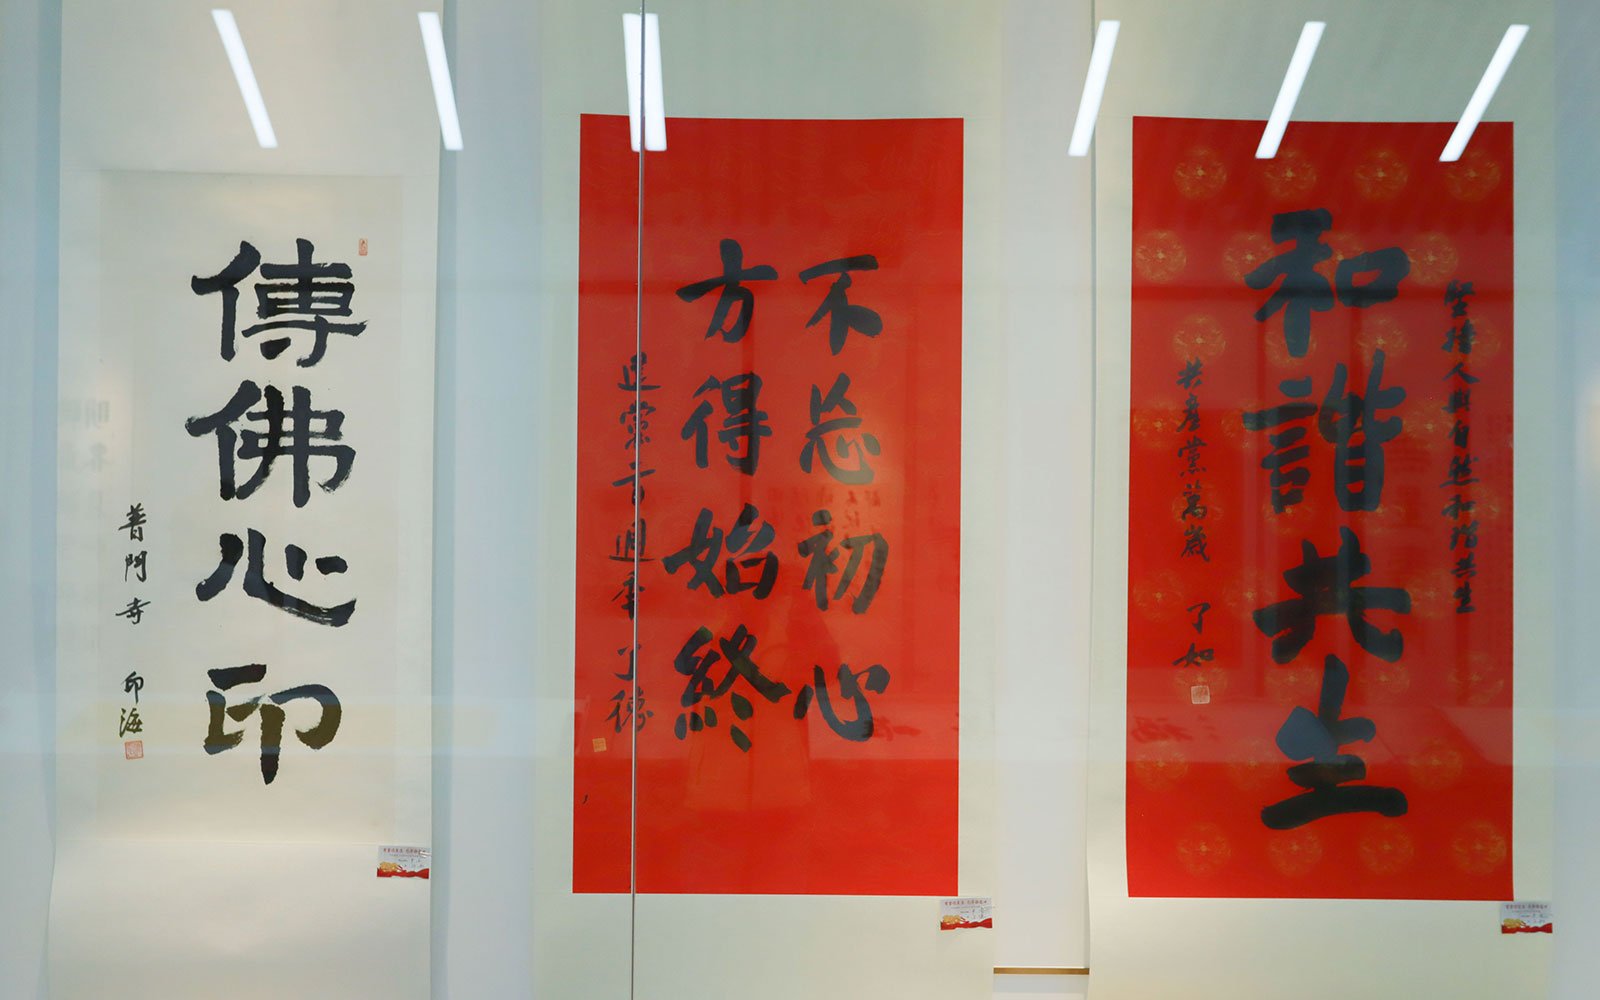 傳佛心印
普門寺 印海
不忘初心
方得始終
建黨百週年 了德
堅持人與自然和諧共生
和諧共生
共產黨萬歲 了如